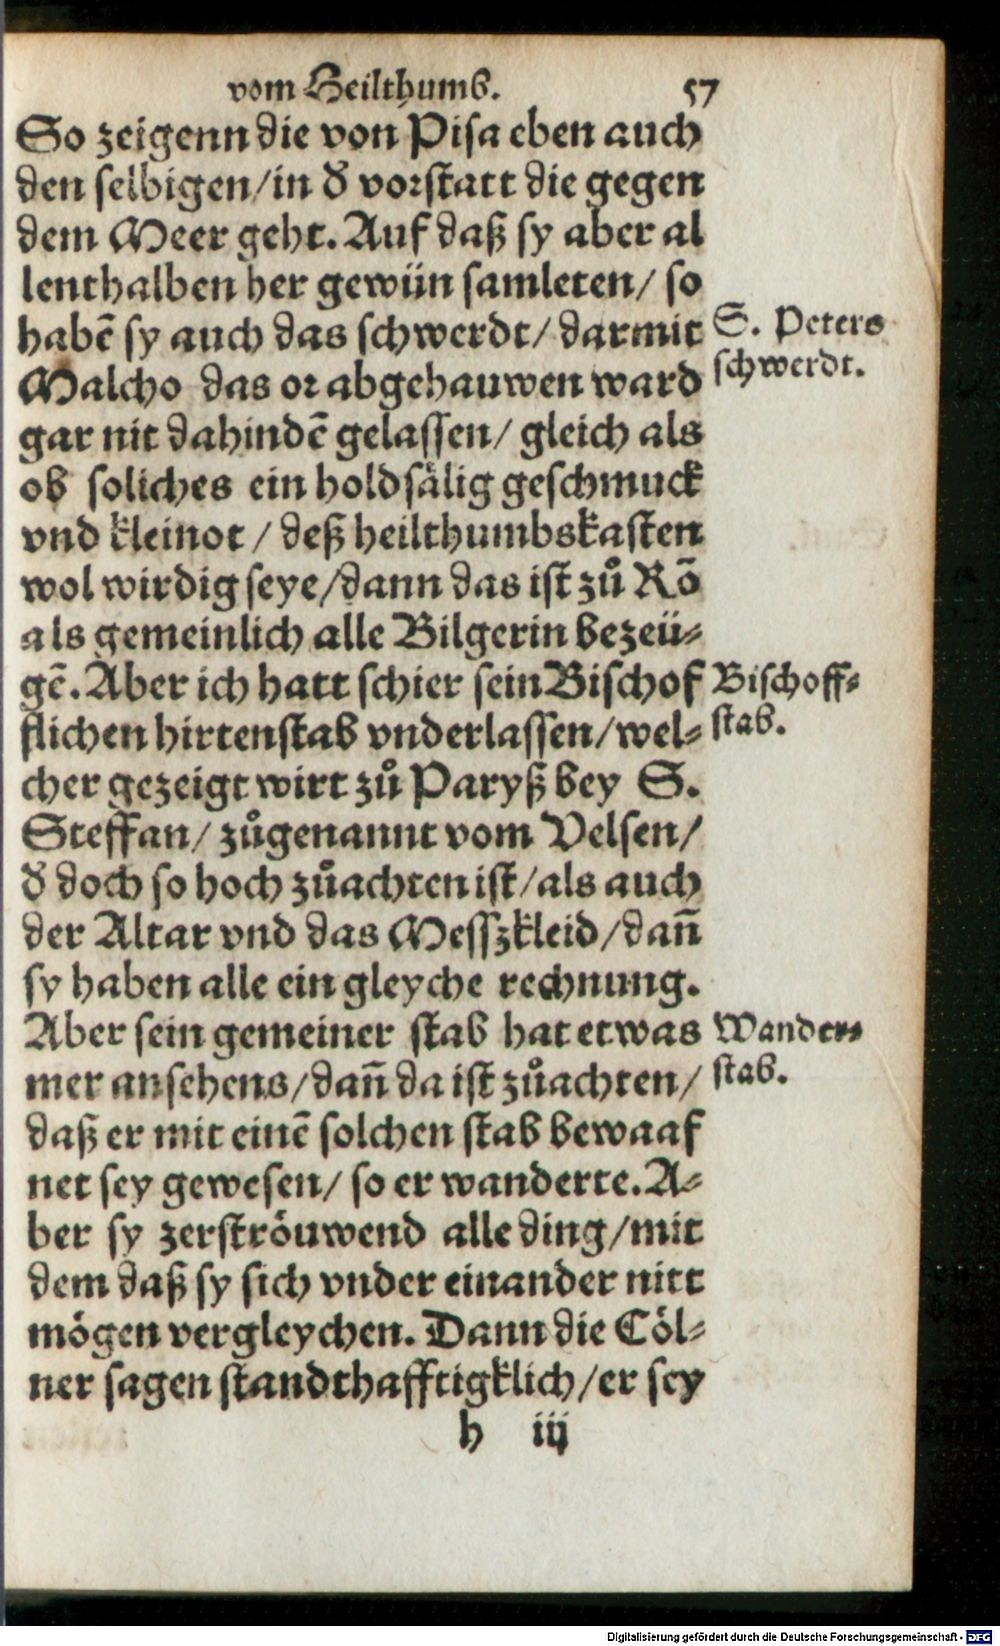 vom Heilthumb. 57
So zeigenn die von Pisa eben auch
den selbigen/in d̕ vorstatt die gegen
dem Meer geht. Auf daß sy aber al
lenthalben her gewün samleten/ so
habē sy auch das schwerdt/ darmit
S. Peters
schwerdt.
Malcho das or abgehauwen ward
gar nit dahindē gelassen/ gleich als
ob soliches ein holdsälig geschmuck
vnd kleinot / deß heilthumbskasten
wol wirdig seye/dann das ist zů Rō
als gemeinlich alle Bilgerin bezeü⸗
gē. Aber ich hatt schier sein Bischof
Bischoff⸗
stab.
flichen hirtenstab vnderlassen/wel⸗
cher gezeigt wirt zů Paryß bey S.
Steffan/ zůgenannt vom Velsen/
d̕ doch so hoch zůachten ist/als auch
der Altar vnd das Messzkleid/dañ
sy haben alle ein gleyche rechnung.
Aber sein gemeiner stab hat etwas
Wander⸗
stab.
mer ansehens/dañ da ist zůachten/
daß er mit einē solchen stab bewaaf
net sey gewesen/ so er wanderte. A⸗
ber sy zerströuwend alle ding/mit
dem daß sy sich vnder einander nitt
mögen vergleychen. Dann die Cöl⸗
ner sagen standthafftigklich/er sey
h iij
Digitalisierung gefördert durch die Deutsche Forschungsgemeinschaft - DFG